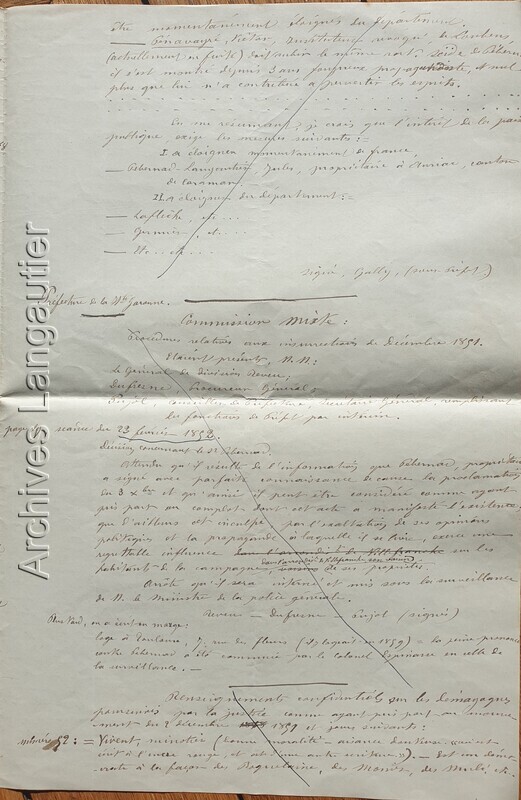 être momentanément éloignés du département.
— Pénavayre, Victor, Instituteur révoqué de Loubens
(actuellement en fuite) doit subir le même sort.
il s'est montré depuis 3 ans fougueux propagandiste, et nul
plus que lui n'a contribué à pervertir les esprits.
En me résumant, je crois que l'intérêt de la paix
publique exige les mesures suivantes :-
I. à éloigner momentanément de france
— Pébernad-Langautier, Jules, propriétaire à Auriac, canton
de Caraman.
II. à éloigner du département :-
— Laflèche, ...
—
—
Signé, Gally, (sous-Préfet)
Préfecture de la Hte Garonne.
Commission Mixte :
Procédures relatives aux insurrections de Décembre 1851.
Etaient présents, M.M :
le Général de Division Reveu ;
Dufresne, Procureur Général ;
Pujol, conseiller de Préfecture, Secrétaire Général, remplissant
les fonctions de Préfet par intérim.
séance du 23 février 1852.
Décision concernant le Sr Pébernad.
Attendu qu'il résulte de l'information que Pébernad, propriétaire
a signé avec parfaite connaissance de cause la proclamation
du 3 Xbre et qu'ainsi il peut être considéré comme ayant
pris part au complot dont cet acte a manifesté l'existence,
que d'ailleurs cet inculpé, par l'exaltation de ses opinions
politiques et la propagande à laquelle il se livre, exerce une
regrettable influence dans l'arrondt de Villefranche sur les
dans l'arrondt de Villefranche
habitants de la campagne, de ses propriétés.
Arrête qu'il sera interné et mis sous la surveillance
de M. le Ministre de la police générale.
Reveu — Dufresne — Pujol (signés)
Plus tard, on a écrit en marge :
logé à Toulouse, 7, rue des fleurs (Il y logeait en 1859) = la peine prononcée
contre Pébernad a été commuée par le colonel Espinasse en celle de
la surveillance. —
Renseignements confidentiels sur les démagogues
poursuivis par la justice comme ayant pris part au mouve-
ment du 2 décembre 1851 et jours suivants :
= Vivent, ministre (bonne moralité — aisance douteuse
à l'encre rouge et est d'une autre écriture) — Est un démo-
crate à la façon des Roquelaine, des Mondo, des Mulé, etc.
Archives Langautier